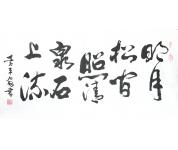 明月
松间
照清
泉石
上流